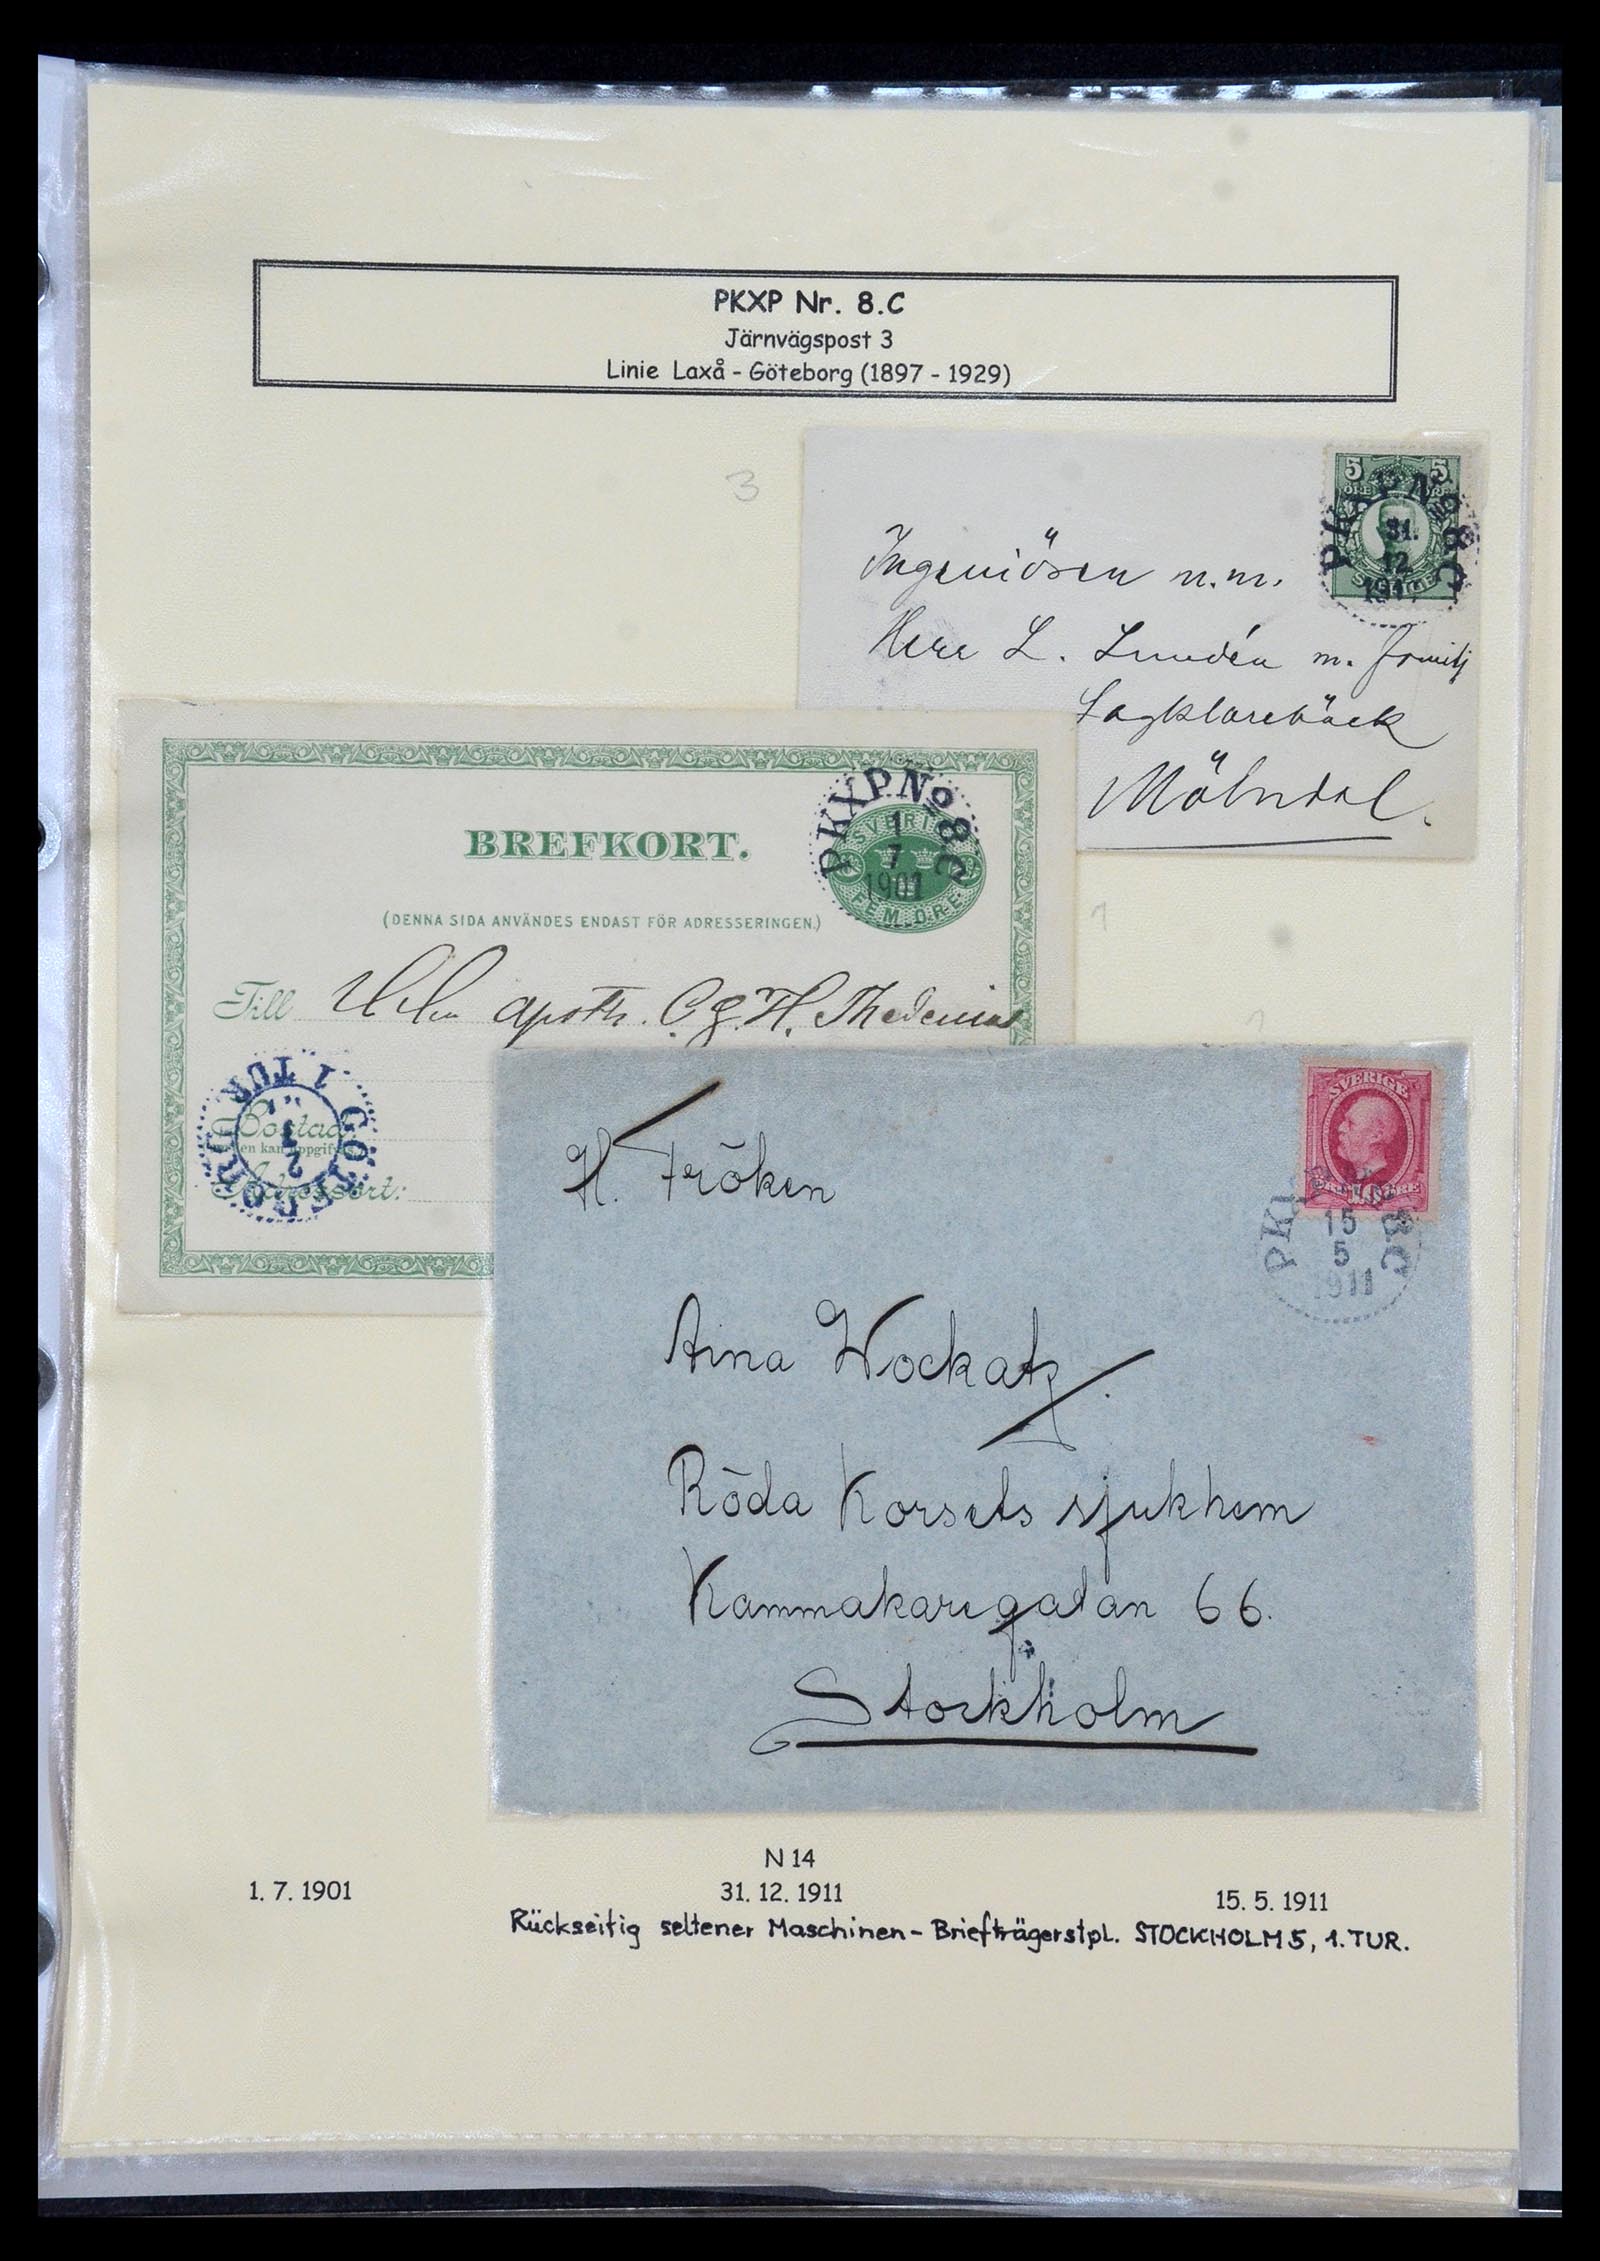 PKXP Nr. 8.C
Järnvägspost 3
Linie Laxå - Göteborg (1897 - 1929)
3
5 5
ÖRE
PKXP No 8C
31.
12.
191
Ingeniören m.m.
Herr L. Lundén m. familj
Lagklarebäck
Mölndal.
BREFKORT.
PKXP.No 8C
1
7
1901
SVERIGE
FEM ÖRE
(DENNA SIDA ANVÄNDES ENDAST FÖR ADRESSERINGEN.)
Till apoth. C.G.H. Thedenius
1 TUR
GÖTEBORG
2
7
Bostad
Adressort:
SVERIGE
10
PKXP 8C
15
5
1911
H. Fröken
Aina Wockatz
Röda Korsets sjukhem
Kammakaregatan 66.
Stockholm
N 14
1. 7. 1901
31. 12. 1911
15. 5. 1911
Rückseitig seltener Maschinen - Briefträgerstpl. STOCKHOLM 5, 1. TUR.